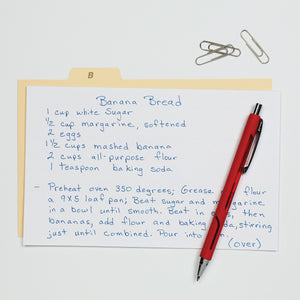 B
Banana Bread
1 cup white Sugar
1/2 cup margarine, softened
2 eggs
1 1/2 cups mashed banana
2 cups all-purpose flour
1 teaspoon baking soda
- Preheat oven 350 degrees; Grease flour
a 9X5 loaf pan; Beat sugar and margarine
in a bowl until smooth. Beat in eggs, then
bananas, add flour and baking soda, stirring
just until combined. Pour into
(over)